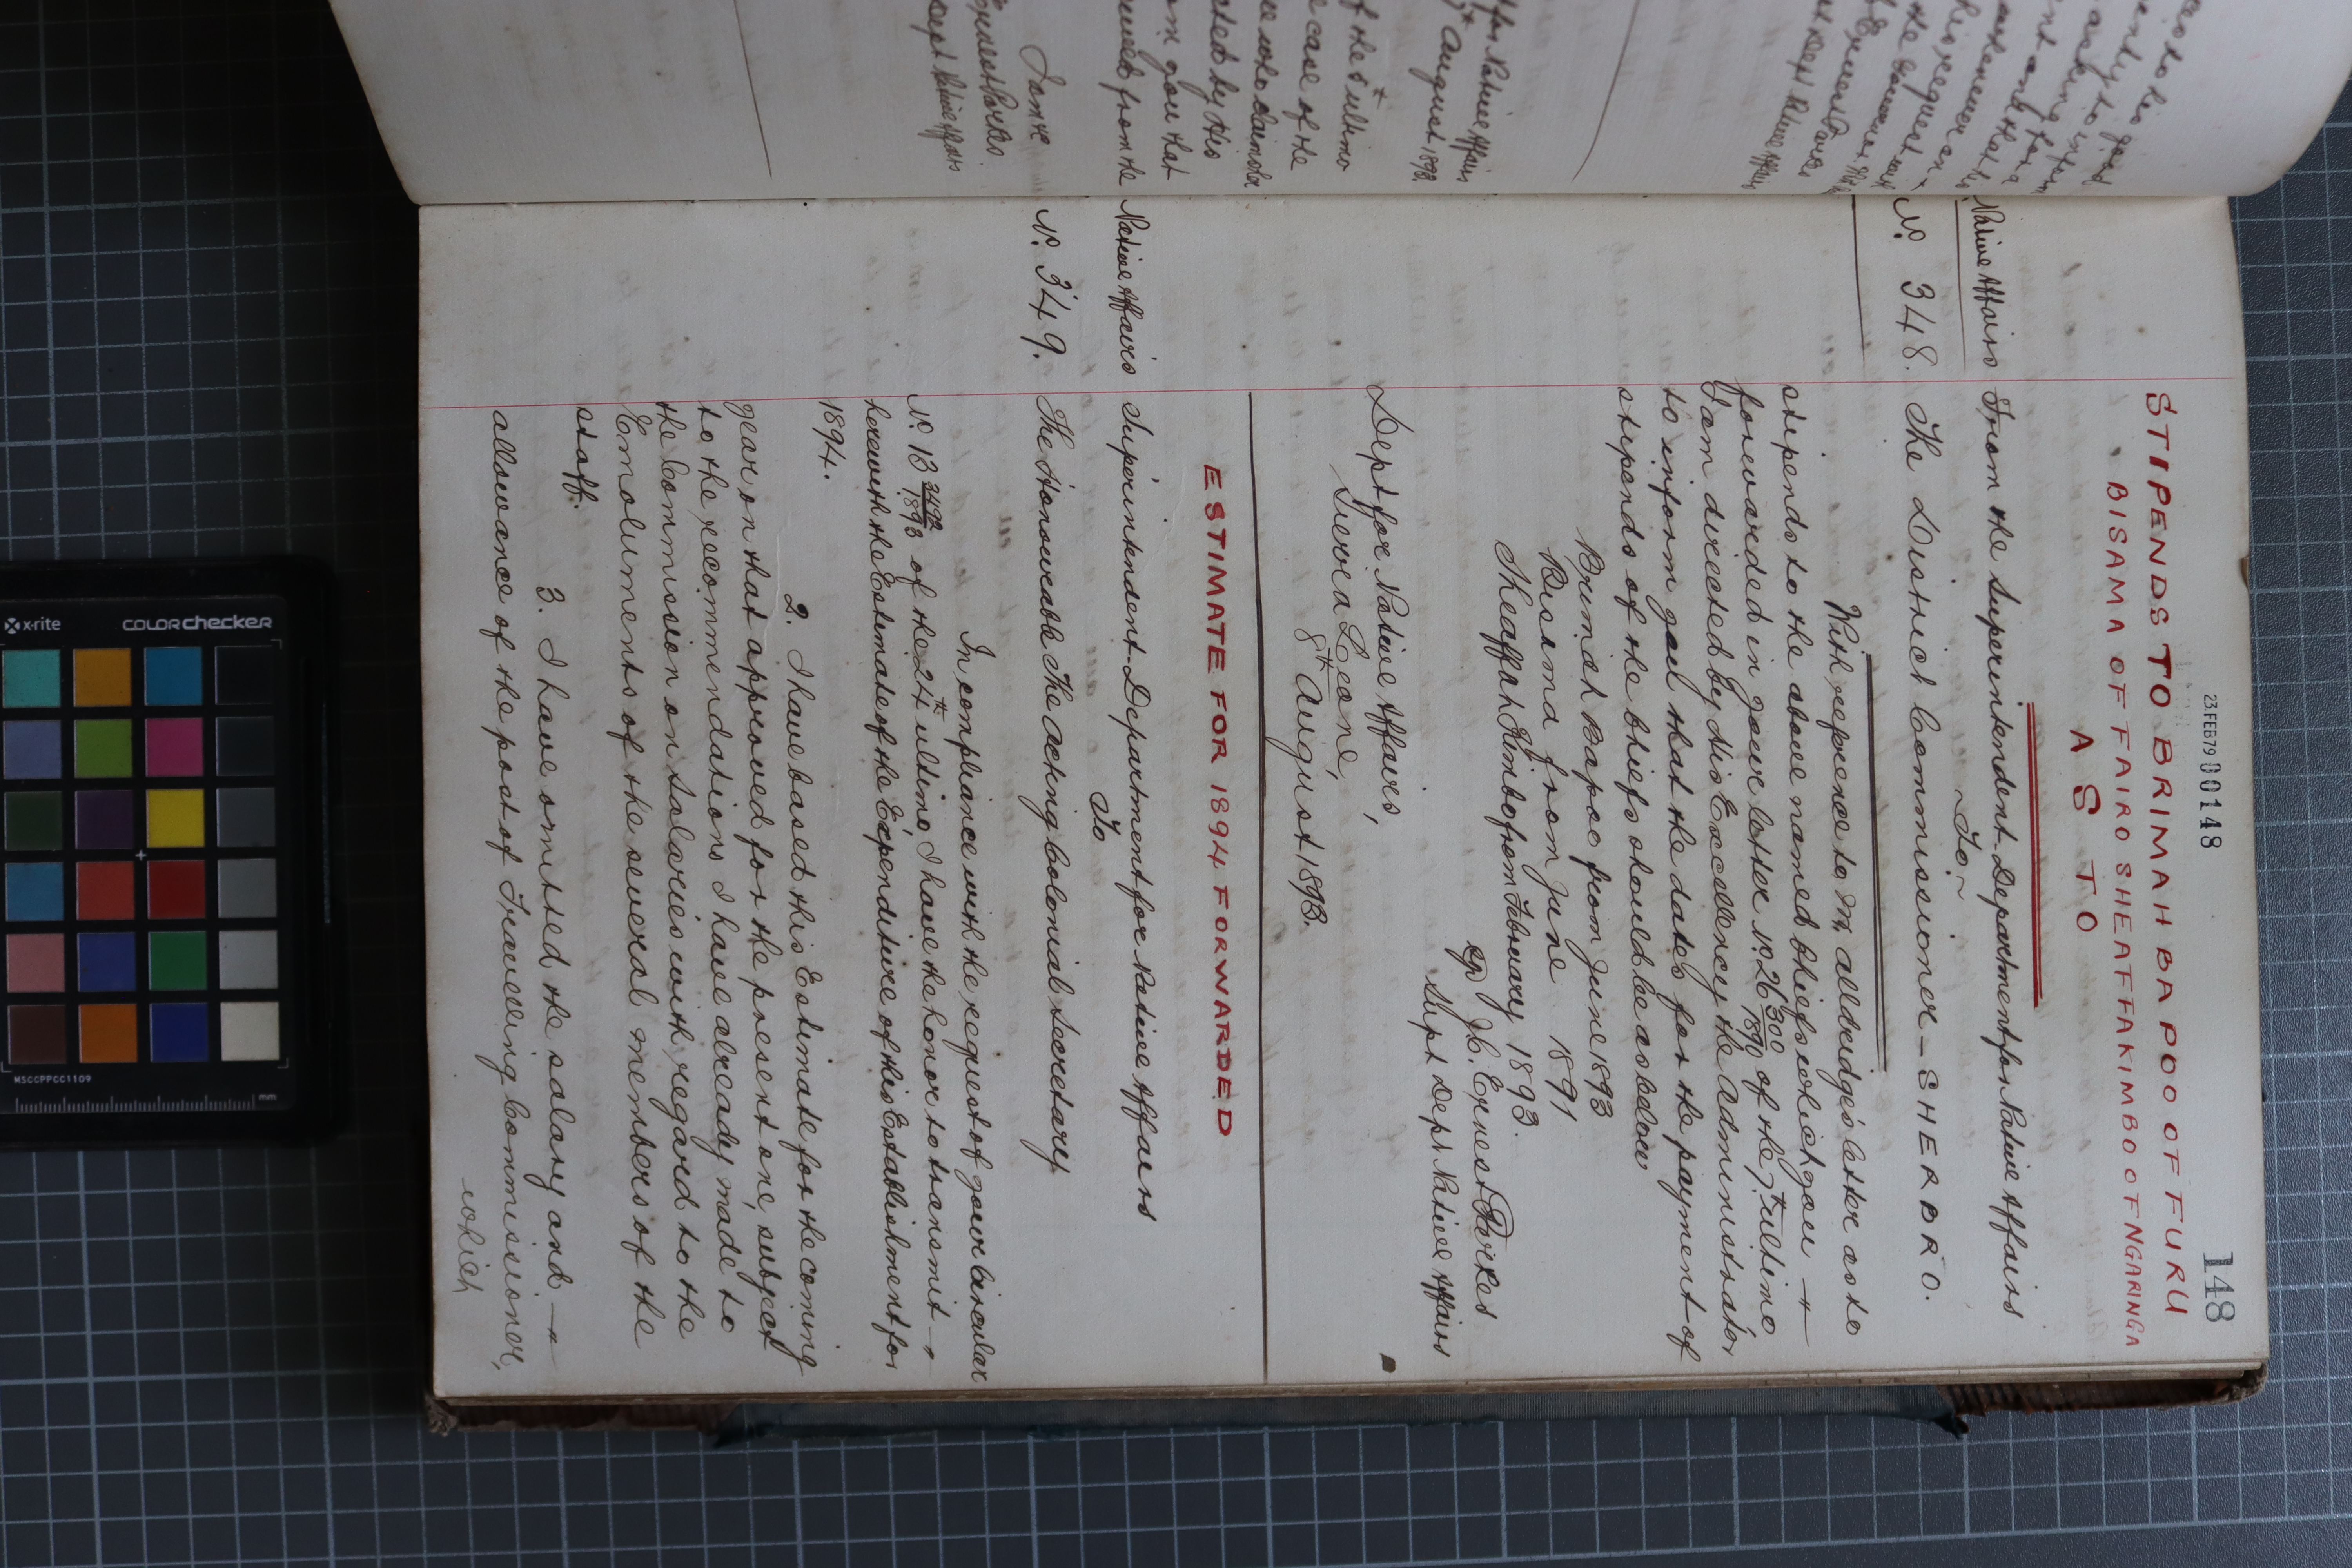 23 FEB 79 00148
148
STIPENDS TO BRIMAH BAPOO OF FURU
BISAMA OF FAIRO SHEAFFAKIMBO OF NGARINGA
AS TO
Native Affairs From the Superintendent Department for Native Affairs
To
No. 348. The District Commissioner - SHERBRO.
With reference to Mr Alldridge's letter as to
stipends to the above named Chiefs which you
forwarded in your letter No. 26 300/1890 of the 7th ultimo
I am directed by His Excellency the Administrator
to inform you that the dates for the payment of
stipends of the Chiefs should be as below
Brimah Bapoo from June 1893
Bisma from June 1891
Sheaffah Kimbo from February 1893.
J. C. Ernest Parkes
Supt Dept Native Affairs
Dept for Native Affairs,
Sierra Leone,
8th August 1893.
ESTIMATE FOR 1894 FORWARDED
Native Affairs Superintendent Department for Native Affairs
To
No. 349. The Honourable The Acting Colonial Secretary
In compliance with the request of your Circular
No. 13 3492/1893 of the 24th ultimo I have the honor to transmit
herewith the Estimate of the Expenditure of this Establishment for
1894.
2. I have based this Estimate for the coming
year on that approved for the present one, subject
to the recommendations I have already made to
the Commission on Salaries with regard to the
Emoluments of the several members of the
staff.
3. I have omitted the salary and
allowance of the post of Travelling Commissioner,
which
x-rite COLORchecker
MSCCPPCC1109
mm